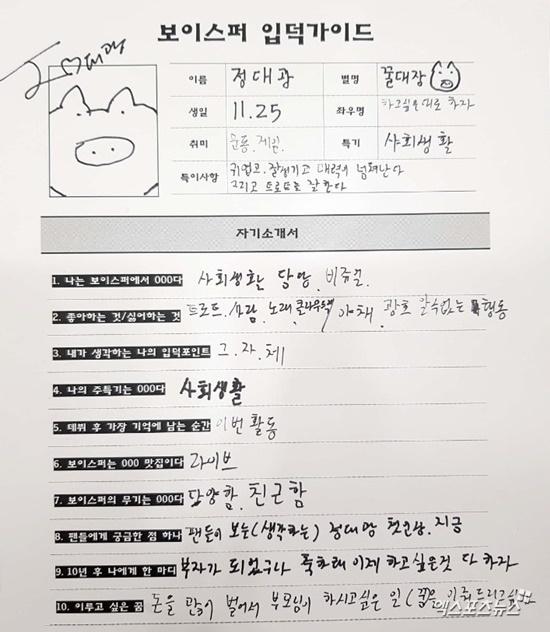 보이스퍼 입덕가이드
이름 정대광 별명 꿀대장
생일 11.25 좌우명 하고싶은대로 하자
취미 운동. 게임. 특기 사회생활
특이사항 귀엽고. 잘생기고 매력이 넘쳐난다
그리고 트로트로 잘한다
자기소개서
1. 나는 보이스퍼에서 OOO다 사회생활 담당. 비쥬얼.
2. 좋아하는 것/싫어하는 것 트로트. 사람. 노래 / 야채. 광흐 알수없는 행동
3. 내가 생각하는 나의 입덕포인트 그.자.체
4. 나의 주특기는 OOO다 사회생활
5. 데뷔 후 가장 기억에 남는 순간 이번 활동
6. 보이스퍼는 OOO 맛집이다 라이브
7. 보이스퍼의 무기는 OOO다 다양함. 친근함
8. 팬들에게 궁금한 점 하나 팬들이 보는(생각하는) 정대광 첫인상. 지금
9. 10년 후 나에게 한 마디 부자가 되었구나 축하해 이제 하고싶은것 다 하자
10. 이루고 싶은 꿈 돈을 많이 벌어서 부모님이 하시고싶은 일(꿈)을
엑스포츠뉴스